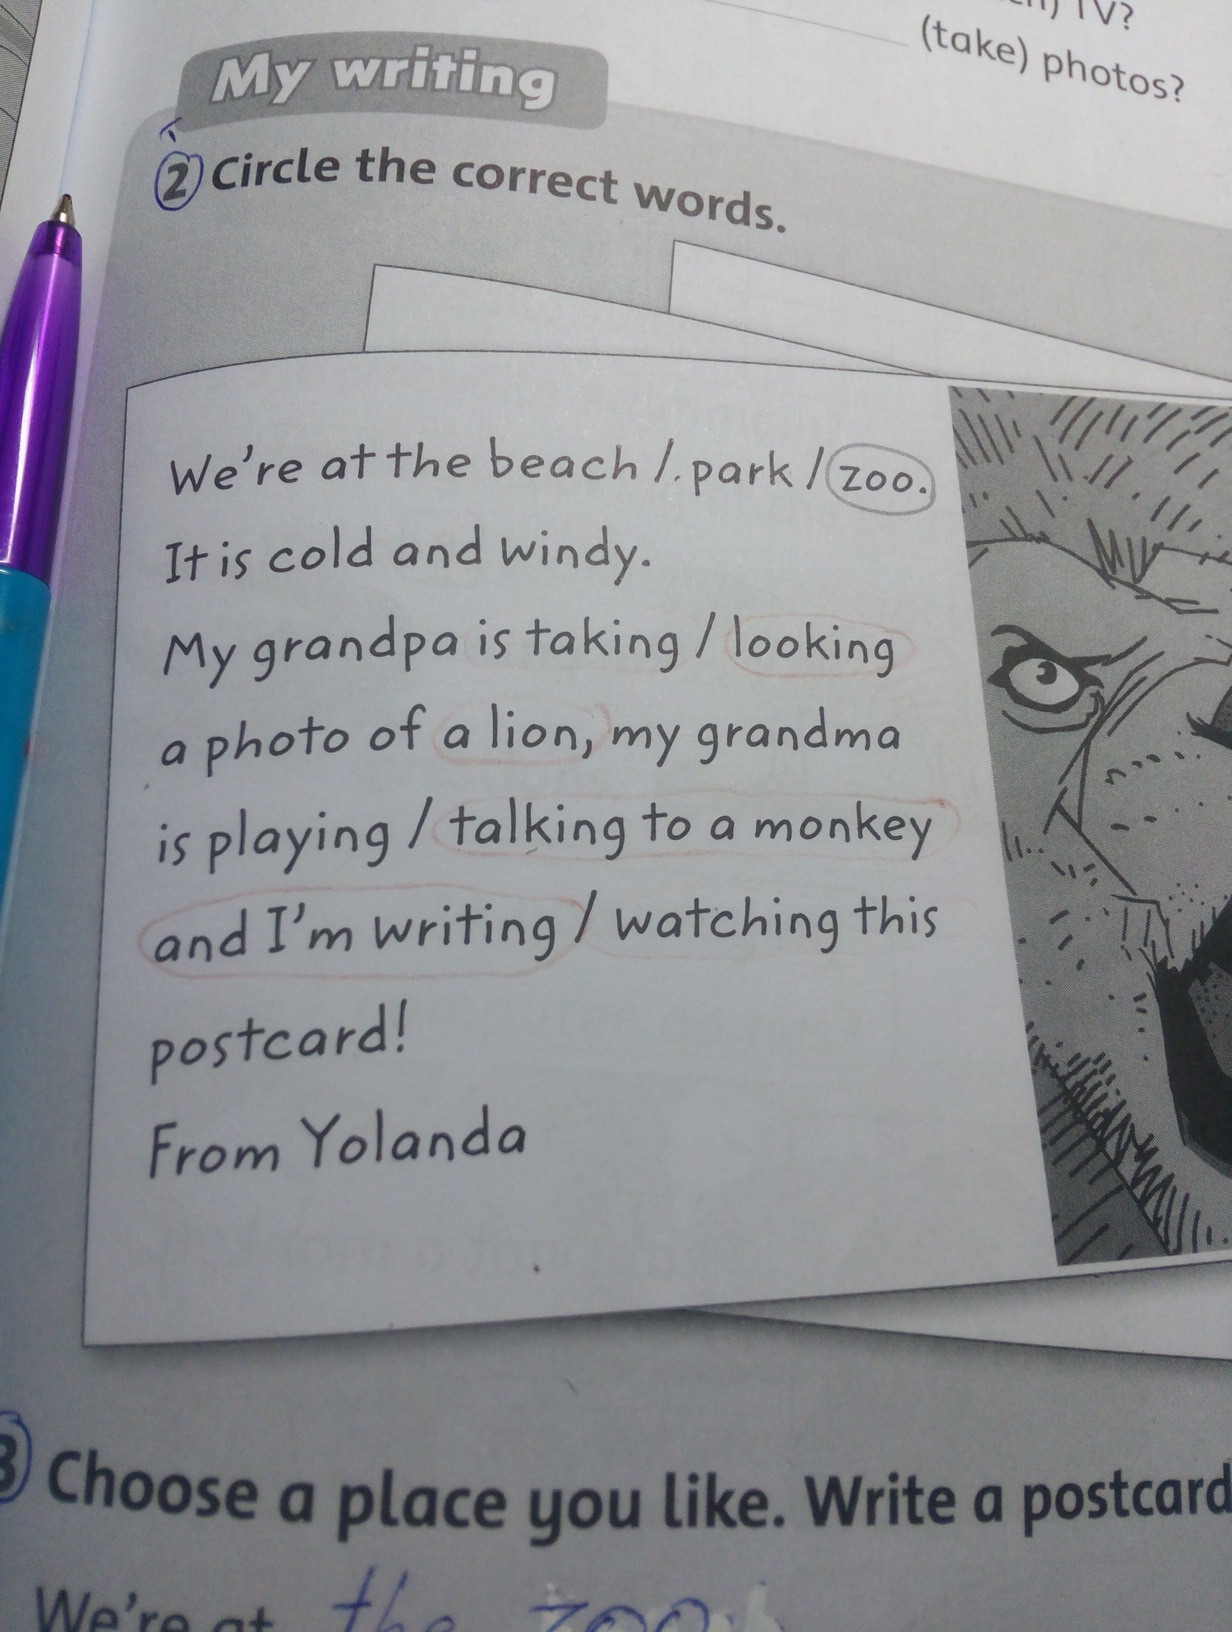 TV?
(take) photos?
My writing
2 Circle the correct words.
We're at the beach / park / zoo.
It is cold and windy.
My grandpa is taking / looking
a photo of a lion, my grandma
is playing / talking to a monkey
and I'm writing / watching this
postcard!
From Yolanda
3 Choose a place you like. Write a postcard
We're at the zoo